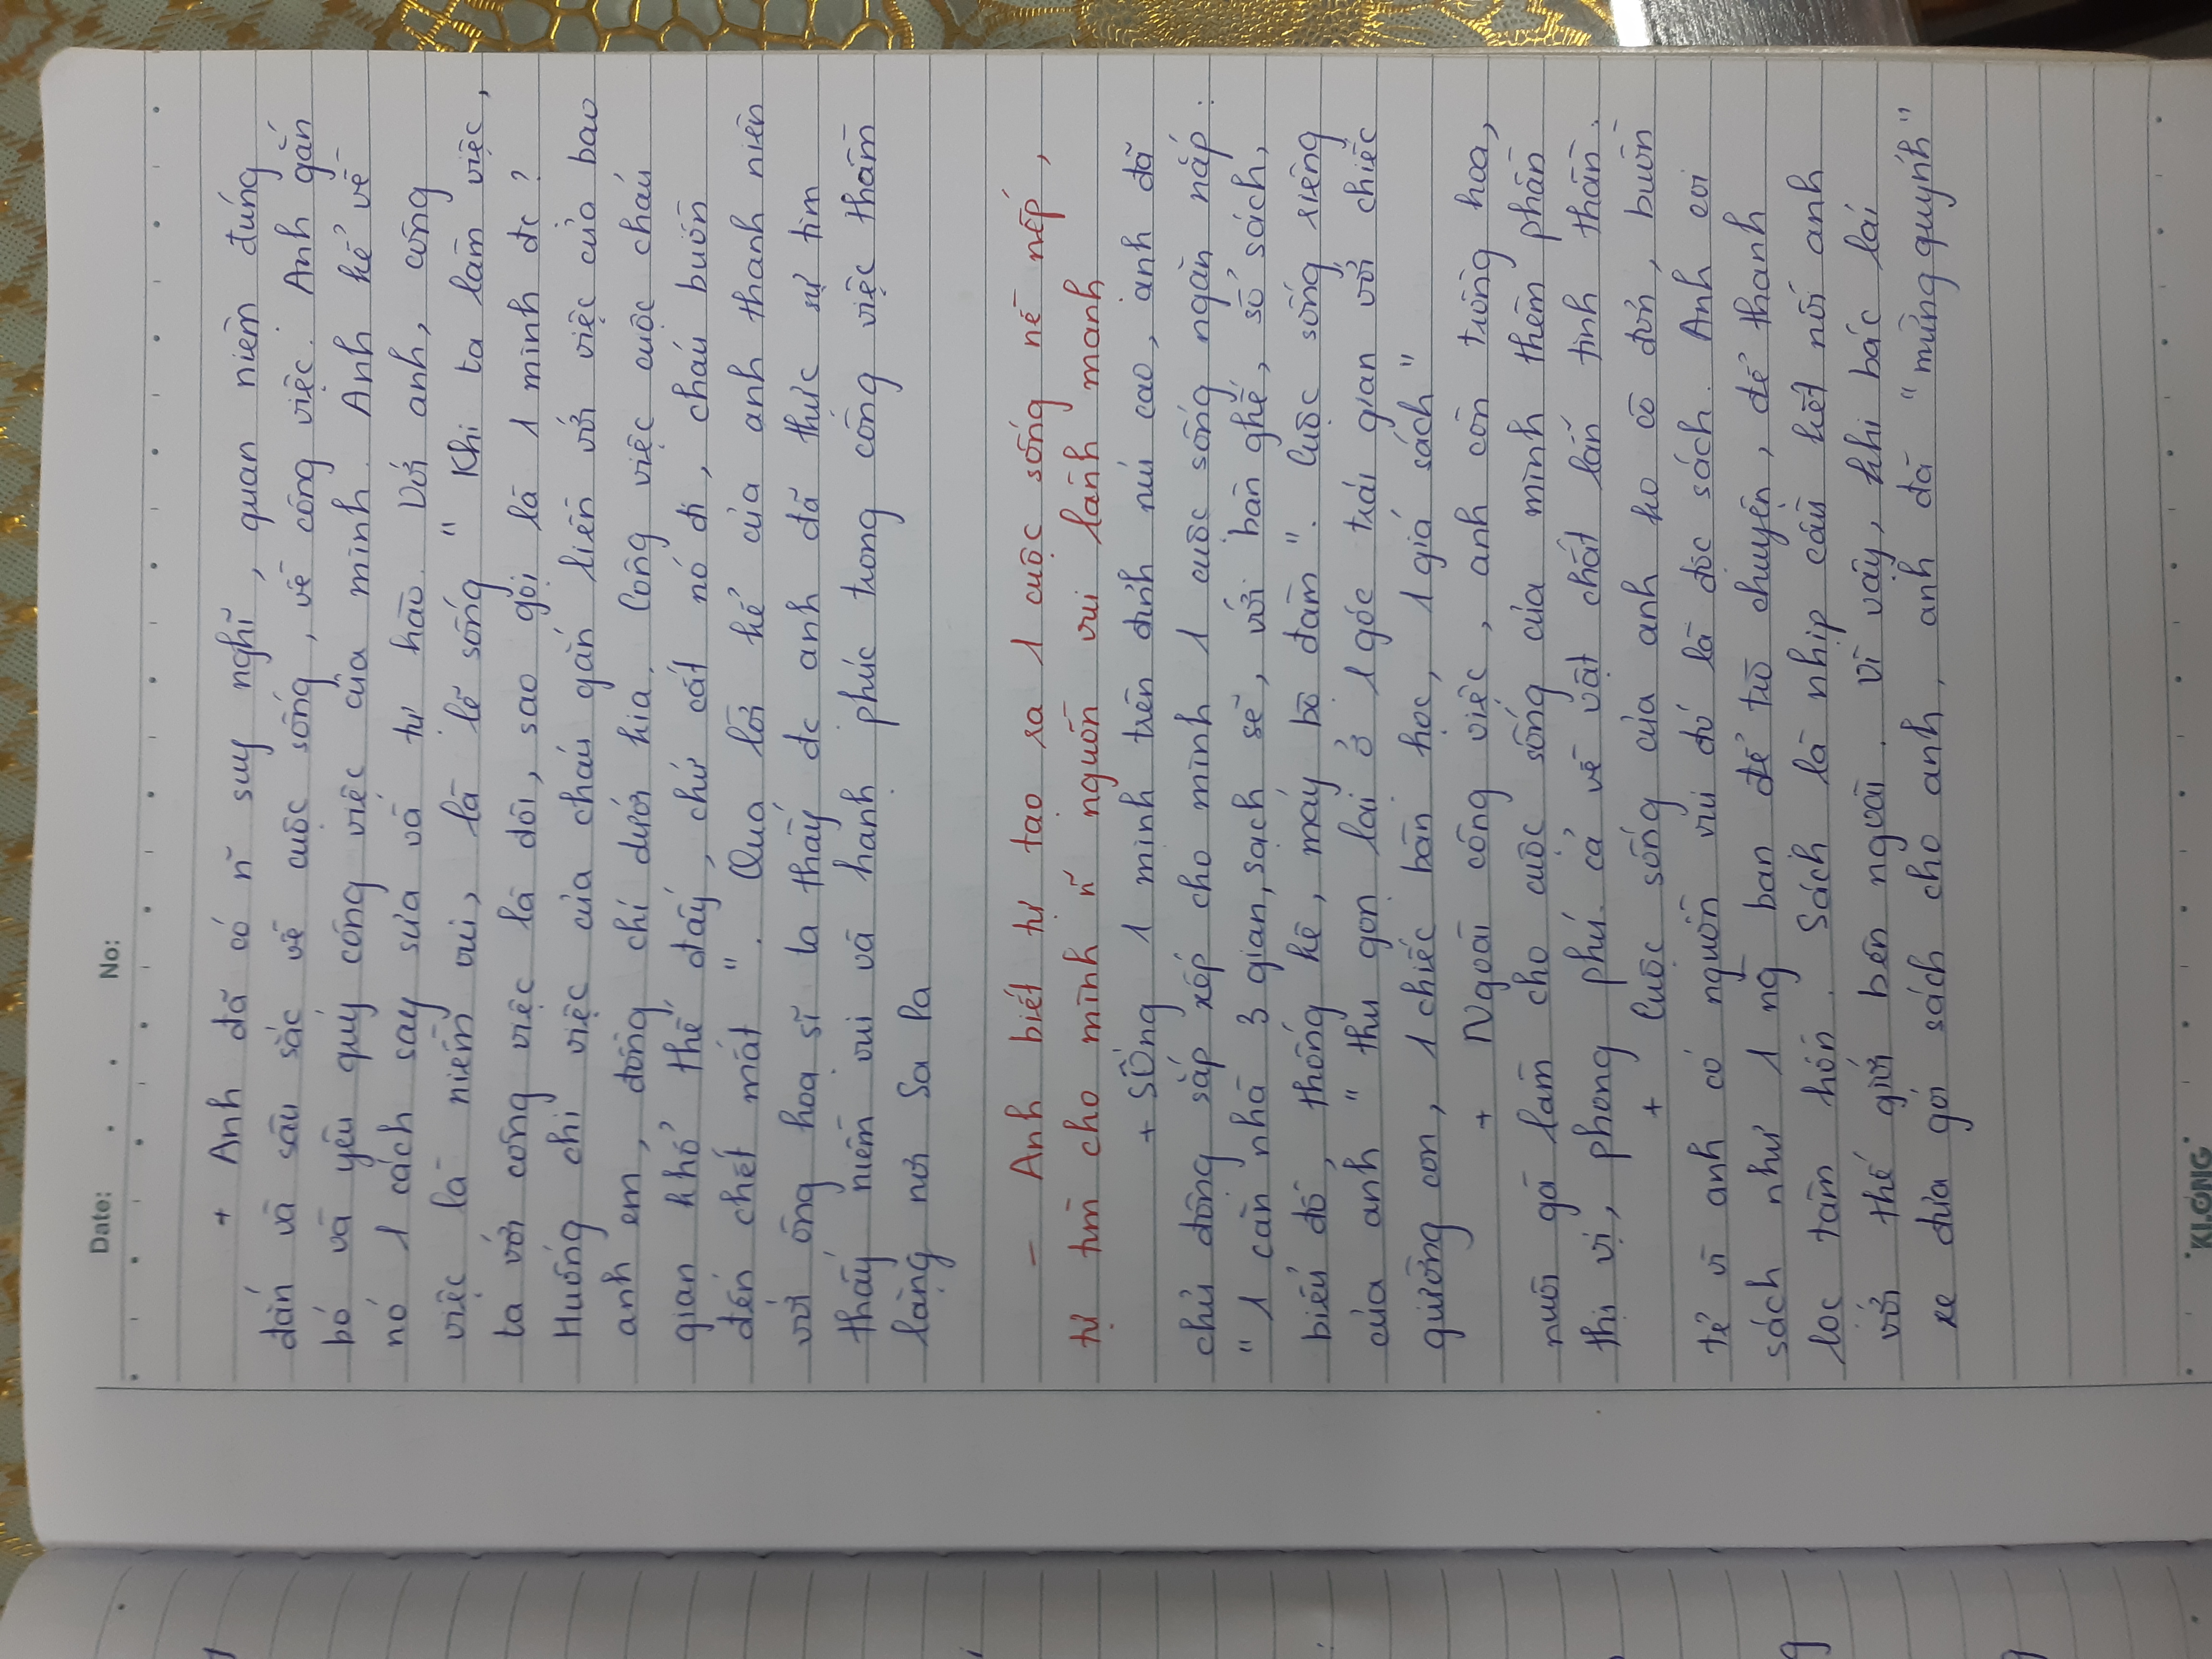 Date: . . No:
+ Anh đã có n~ suy nghĩ, quan niệm đúng
đắn và sâu sắc về cuộc sống, về công việc. Anh gắn
bó và yêu quý công việc của mình. Anh kể về
nó 1 cách say sưa và tự hào. Với anh, công
việc là niềm vui, là lẽ sống " Khi ta làm việc,
ta với công việc là đôi, sao gọi là 1 mình đc ?
Huống chi việc của cháu gắn liền với việc của bao
anh em, đồng chí dưới kia. Công việc cuộc cháu
gian khổ thế đấy, chứ cất nó đi, cháu buồn
đến chết mất ". Qua lời kể của anh thanh niên
với ông hoạ sĩ ta thấy đc anh đã thực sự tìm
thấy niềm vui và hạnh phúc trong công việc thầm
lặng nơi Sa Pa
- Anh biết tự tạo ra 1 cuộc sống nề nếp,
tự tìm cho mình n~ nguồn vui lành mạnh
+ Sống 1 mình trên đỉnh núi cao, anh đã
chủ động sắp xếp cho mình 1 cuộc sống ngăn nắp :
" 1 căn nhà 3 gian, sạch sẽ, với bàn ghế, sổ sách,
biểu đồ, thống kê, máy bộ đàm ". Cuộc sống riêng
của anh " thu gọn lại ở 1 góc trái gian với chiếc
giường con, 1 chiếc bàn học, 1 giá sách "
+ Ngoài công việc, anh còn trồng hoa,
nuôi gà làm cho cuộc sống của mình thêm phần
thi vị, phong phú cả về vật chất lẫn tinh thần.
+ Cuộc sống của anh ko cô đơn, buồn
tẻ vì anh có nguồn vui đó là đọc sách. Anh coi
sách như 1 ng bạn để trò chuyện, để thanh
lọc tâm hồn. Sách là nhịp cầu kết nối anh
với thế giới bên ngoài. Vì vậy, khi bác lái
xe đưa gói sách cho anh, anh đã "mừng quýnh"
KLONG